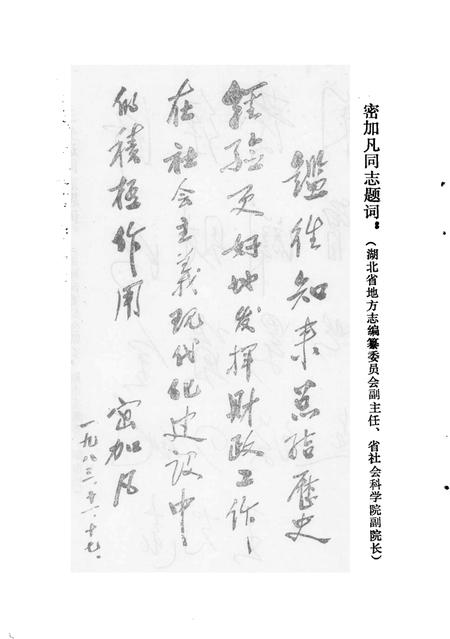 密加凡同志题词：
（湖北省地方志编纂委员会副主任、省社会科学院副院长）
鑑往知来总结歷史
经验更好地发挥财政工作
在社会主義现代化建设中
的積極作用
密加凡
一九八三、十一、十七、